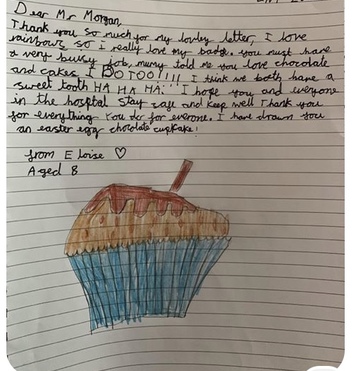 Dear Mr Morgan,
Thank you so much for my lovley letter, I love
rainbows so i really love my badge. you must have
a very bussy job, mumy told me you love chocolate
and cakes I DO TOO!!!! I think we both have a
sweet tooth HA HA HA!... I hope you and everyone
in the hosptial stay safe and keep well Thank you
for everything you do for everone. I have drawn you
an easter egg chocolate cupcake!
from Eloise ♡
Aged 8